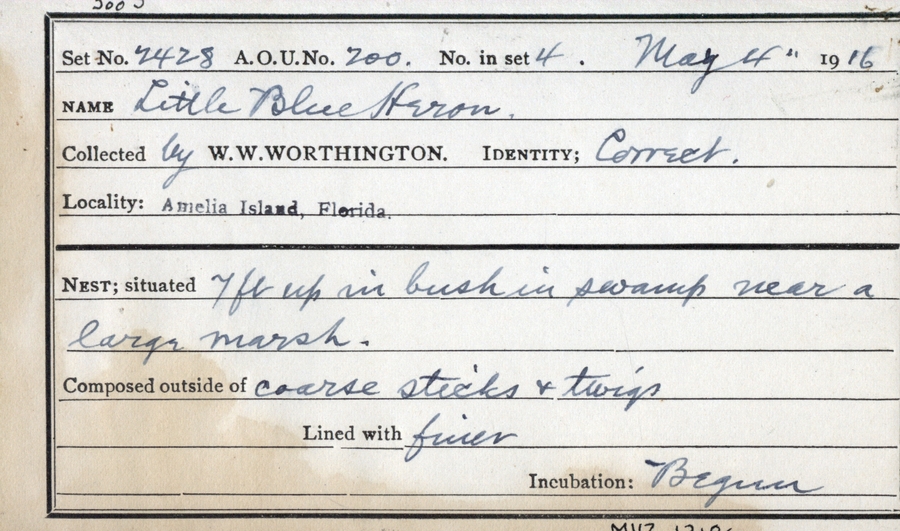 Set No. 2428 A.O.U.No. 200. No. in set 4. May 4" 1916
NAME Little Blue Heron.
Collected by W.W.WORTHINGTON. IDENTITY; Correct.
Locality: Amelia Island, Florida.
NEST; situated 7ft up in bush in swamp near a
large marsh.
Composed outside of coarse sticks & twigs
Lined with finer
Incubation: Begun